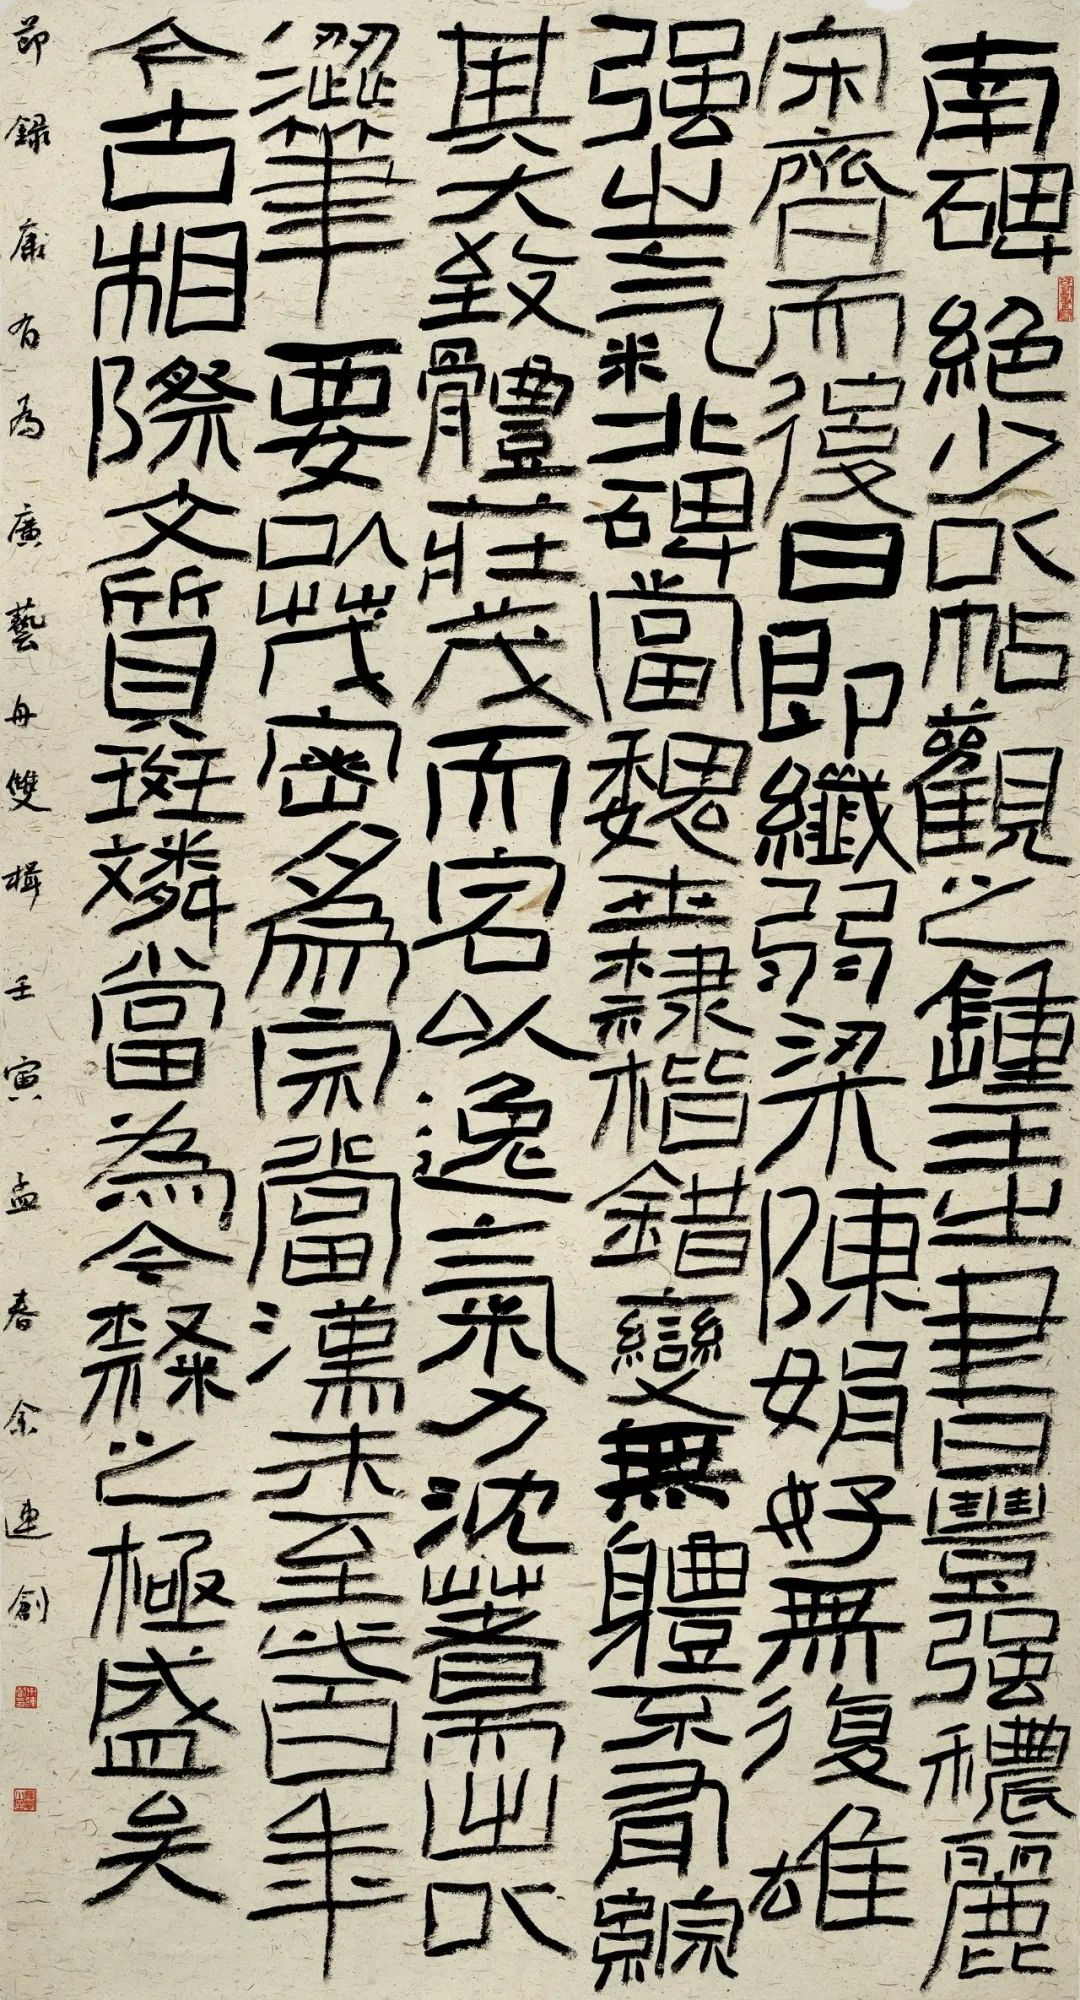 南碑絕少以帖觀之鍾王之書豐强穠麗
宋齊而後日即纖弱梁陳娟好無復雄
强之氣北碑當魏世隸楷錯變無體不有綜
其大致體莊茂而宕以逸氣力沈著而出以
澀筆要以茂密爲宗當漢末至此百年
今古相際文質斑璘當為今隸之極盛矣
節錄康有為廣藝舟雙楫壬寅孟春余連創